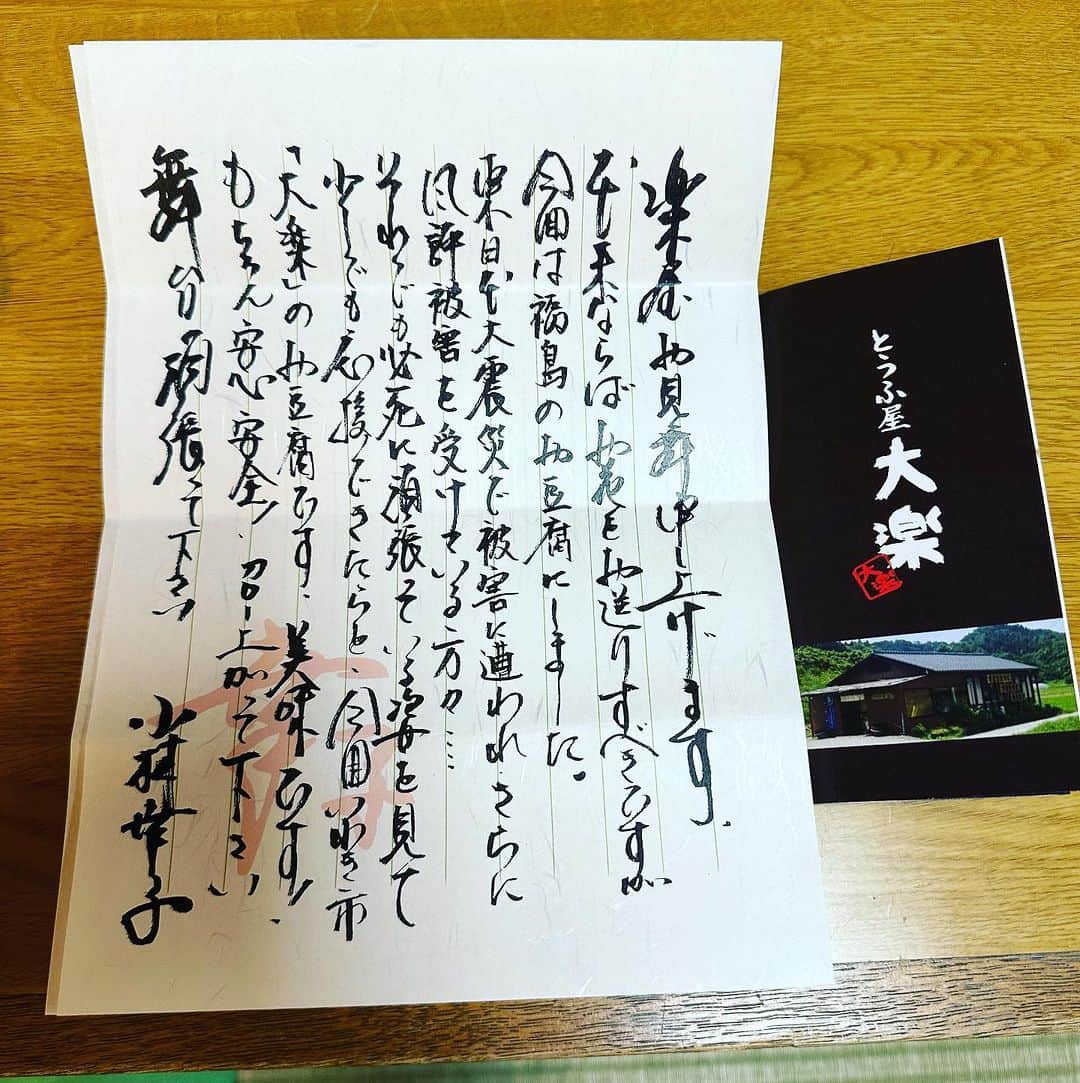 楽屋お見舞申し上げます。
本来ならばお花をお送りすべきですが
今回は福島のお豆腐にしました。
東日本大震災で被害に遭われさらに
風評被害を受けている方々…
それでも必死に頑張っている姿を見て
少しでも応援できたらと、今回いわき市
「大楽」のお豆腐です、美味です!
もちろん安心安全!召し上がって下さい
舞台頑張って下さい
小林幸子
とうふ屋
大楽